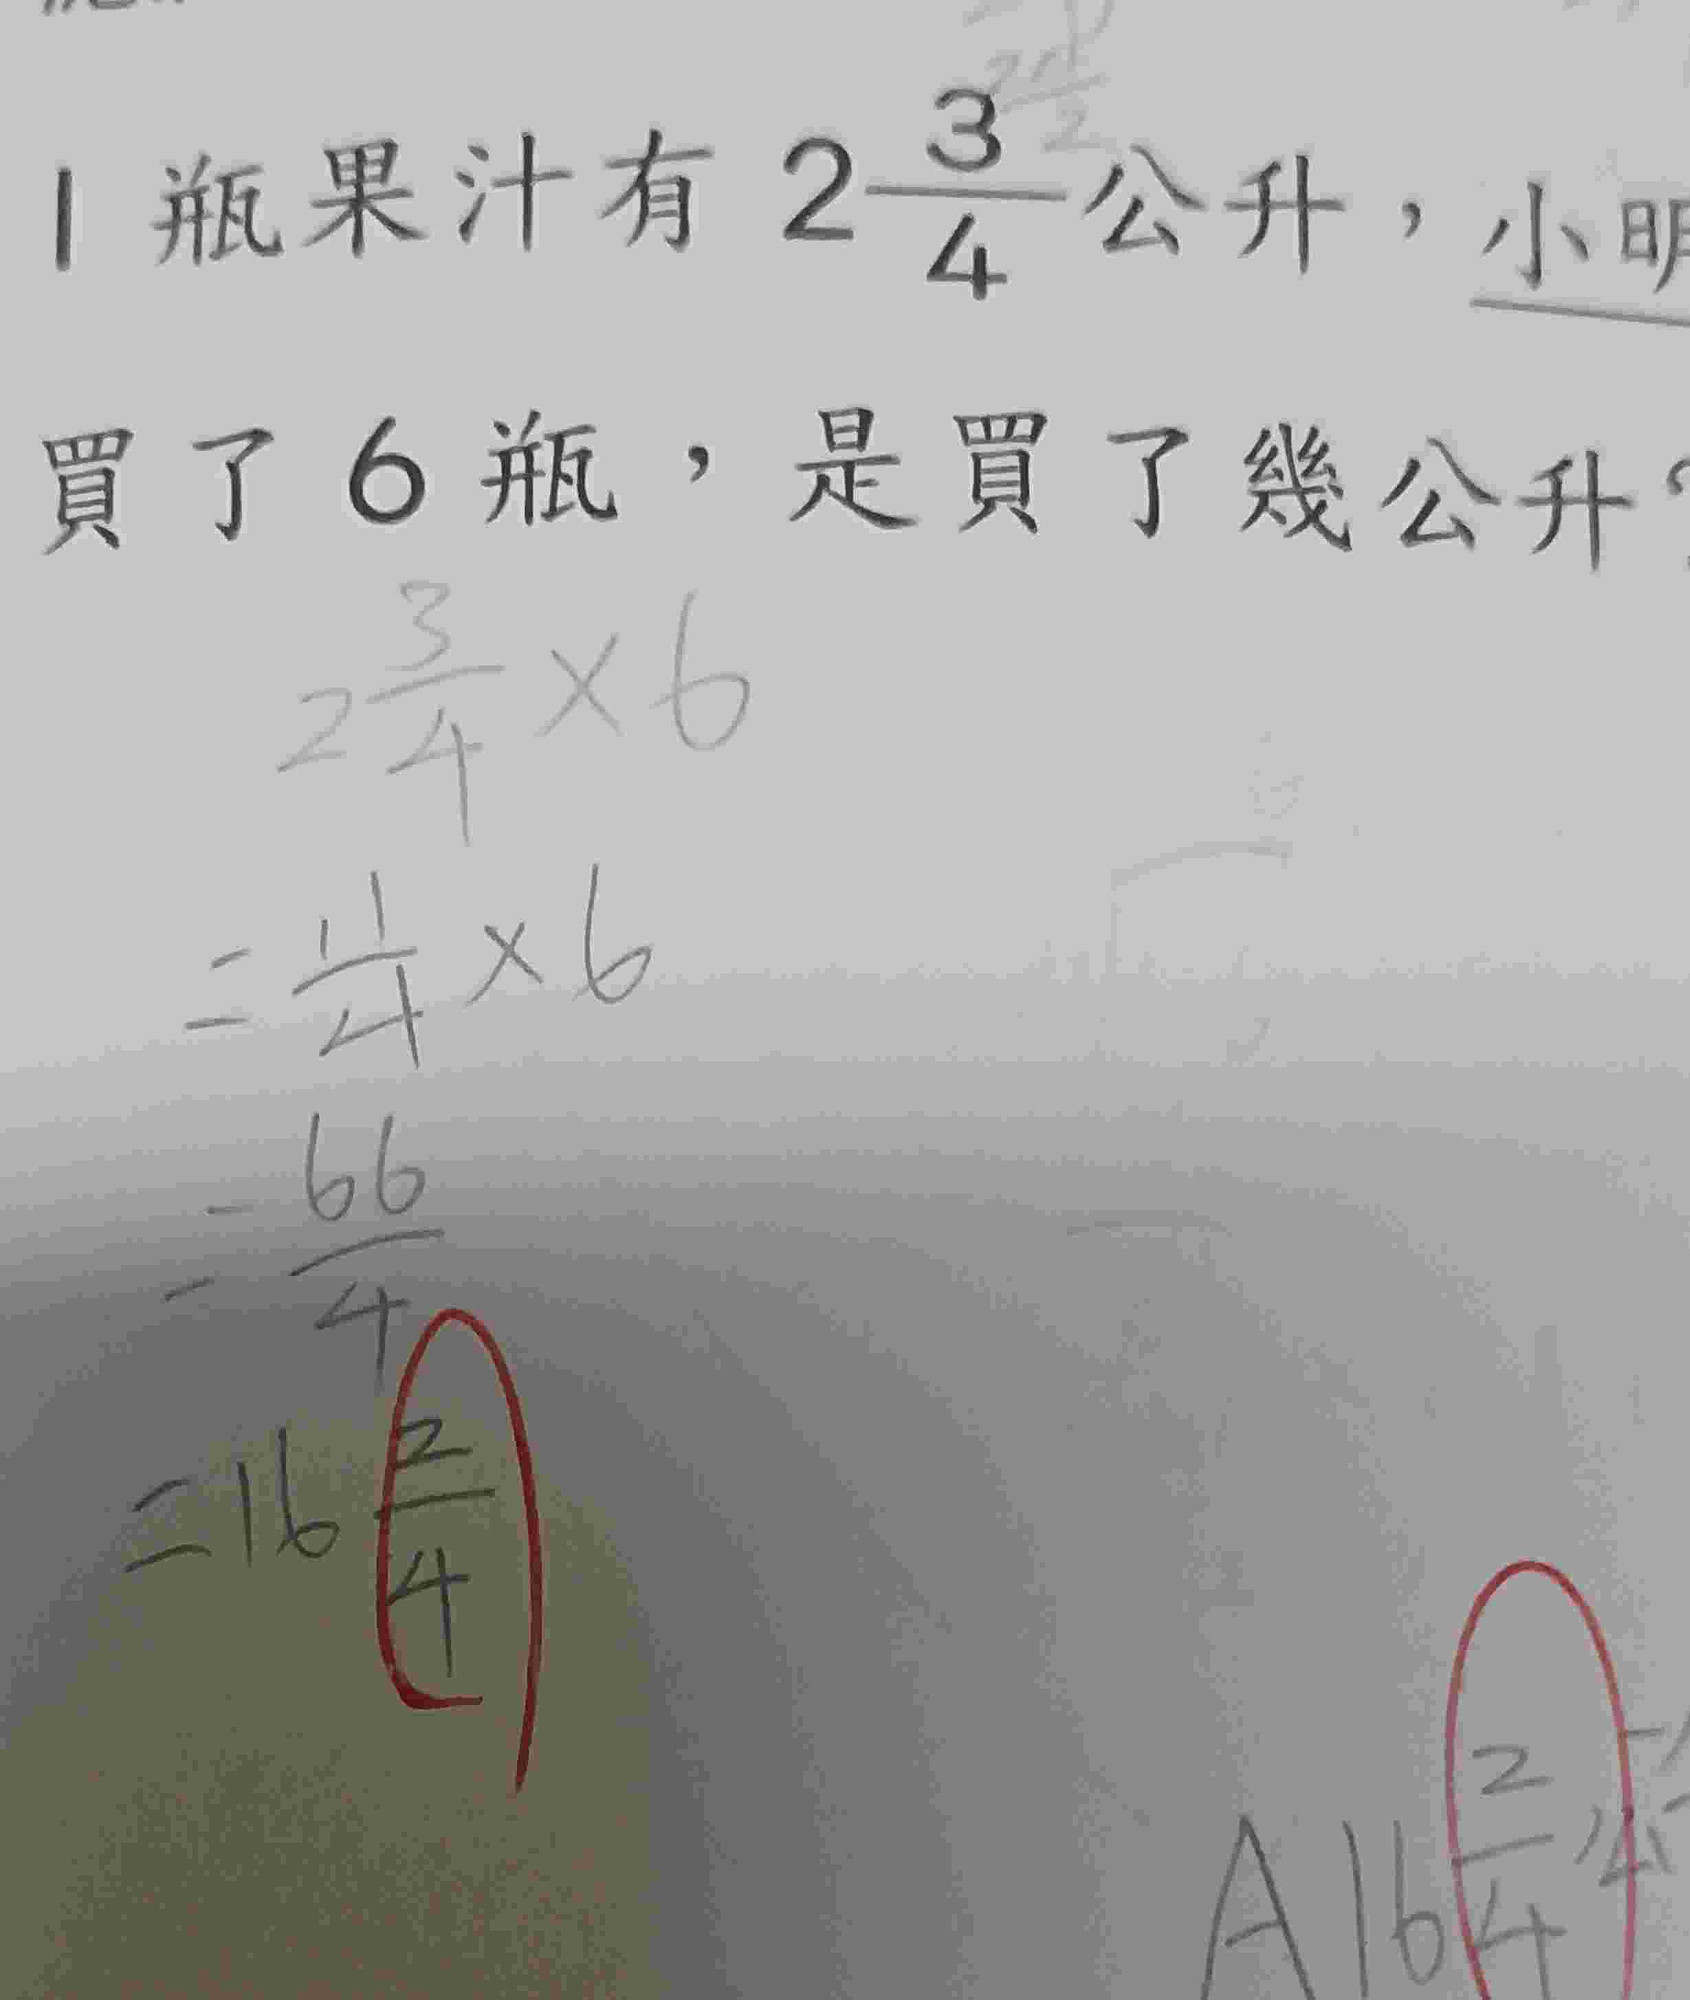 1 瓶果汁有 2 3/4 公升，小明
買了 6 瓶，是買了幾公升？
2 3/4 × 6
= 11/4 × 6
= 66/4
= 16 2/4
A 16 2/4 公